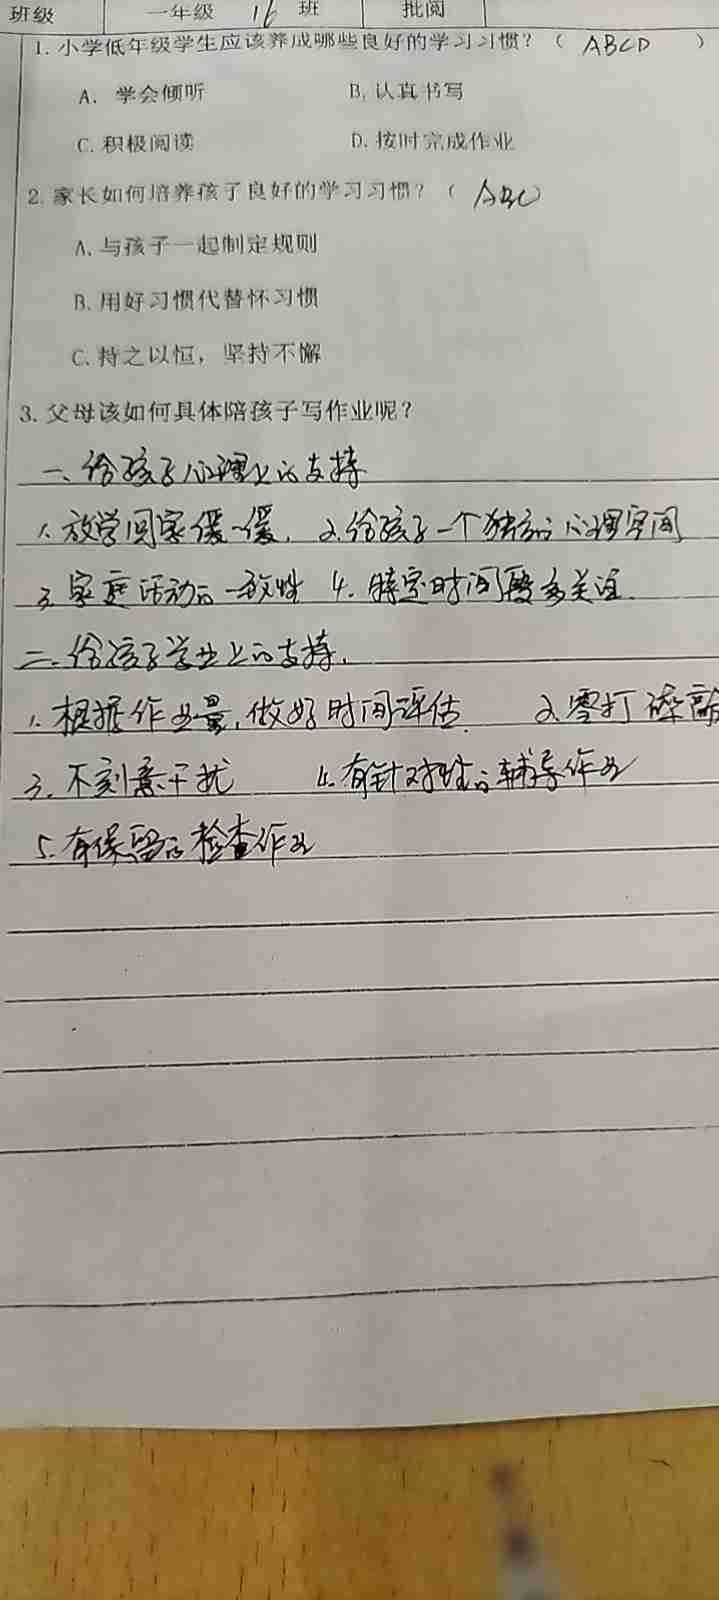 班级 一年级 16 班 批阅
1. 小学低年级学生应该养成哪些良好的学习习惯？（ ABCD ）
A. 学会倾听 B. 认真书写
C. 积极阅读 D. 按时完成作业
2. 家长如何培养孩子良好的学习习惯？（ ABC
A. 与孩子一起制定规则
B. 用好习惯代替怀习惯
C. 持之以恒，坚持不懈
3. 父母该如何具体陪孩子写作业呢？
一、给孩子心理上的支持
1. 放学回家缓一缓. 2. 给孩子一个独立的心理空间
3. 家庭活动的一致性 4. 特定时间段多关注.
二. 给孩子学业上的支持.
1. 根据作业量, 做好时间评估. 2. 零打碎敲
3. 不刻意干扰 4. 有针对性的辅导作业
5. 有保留的检查作业